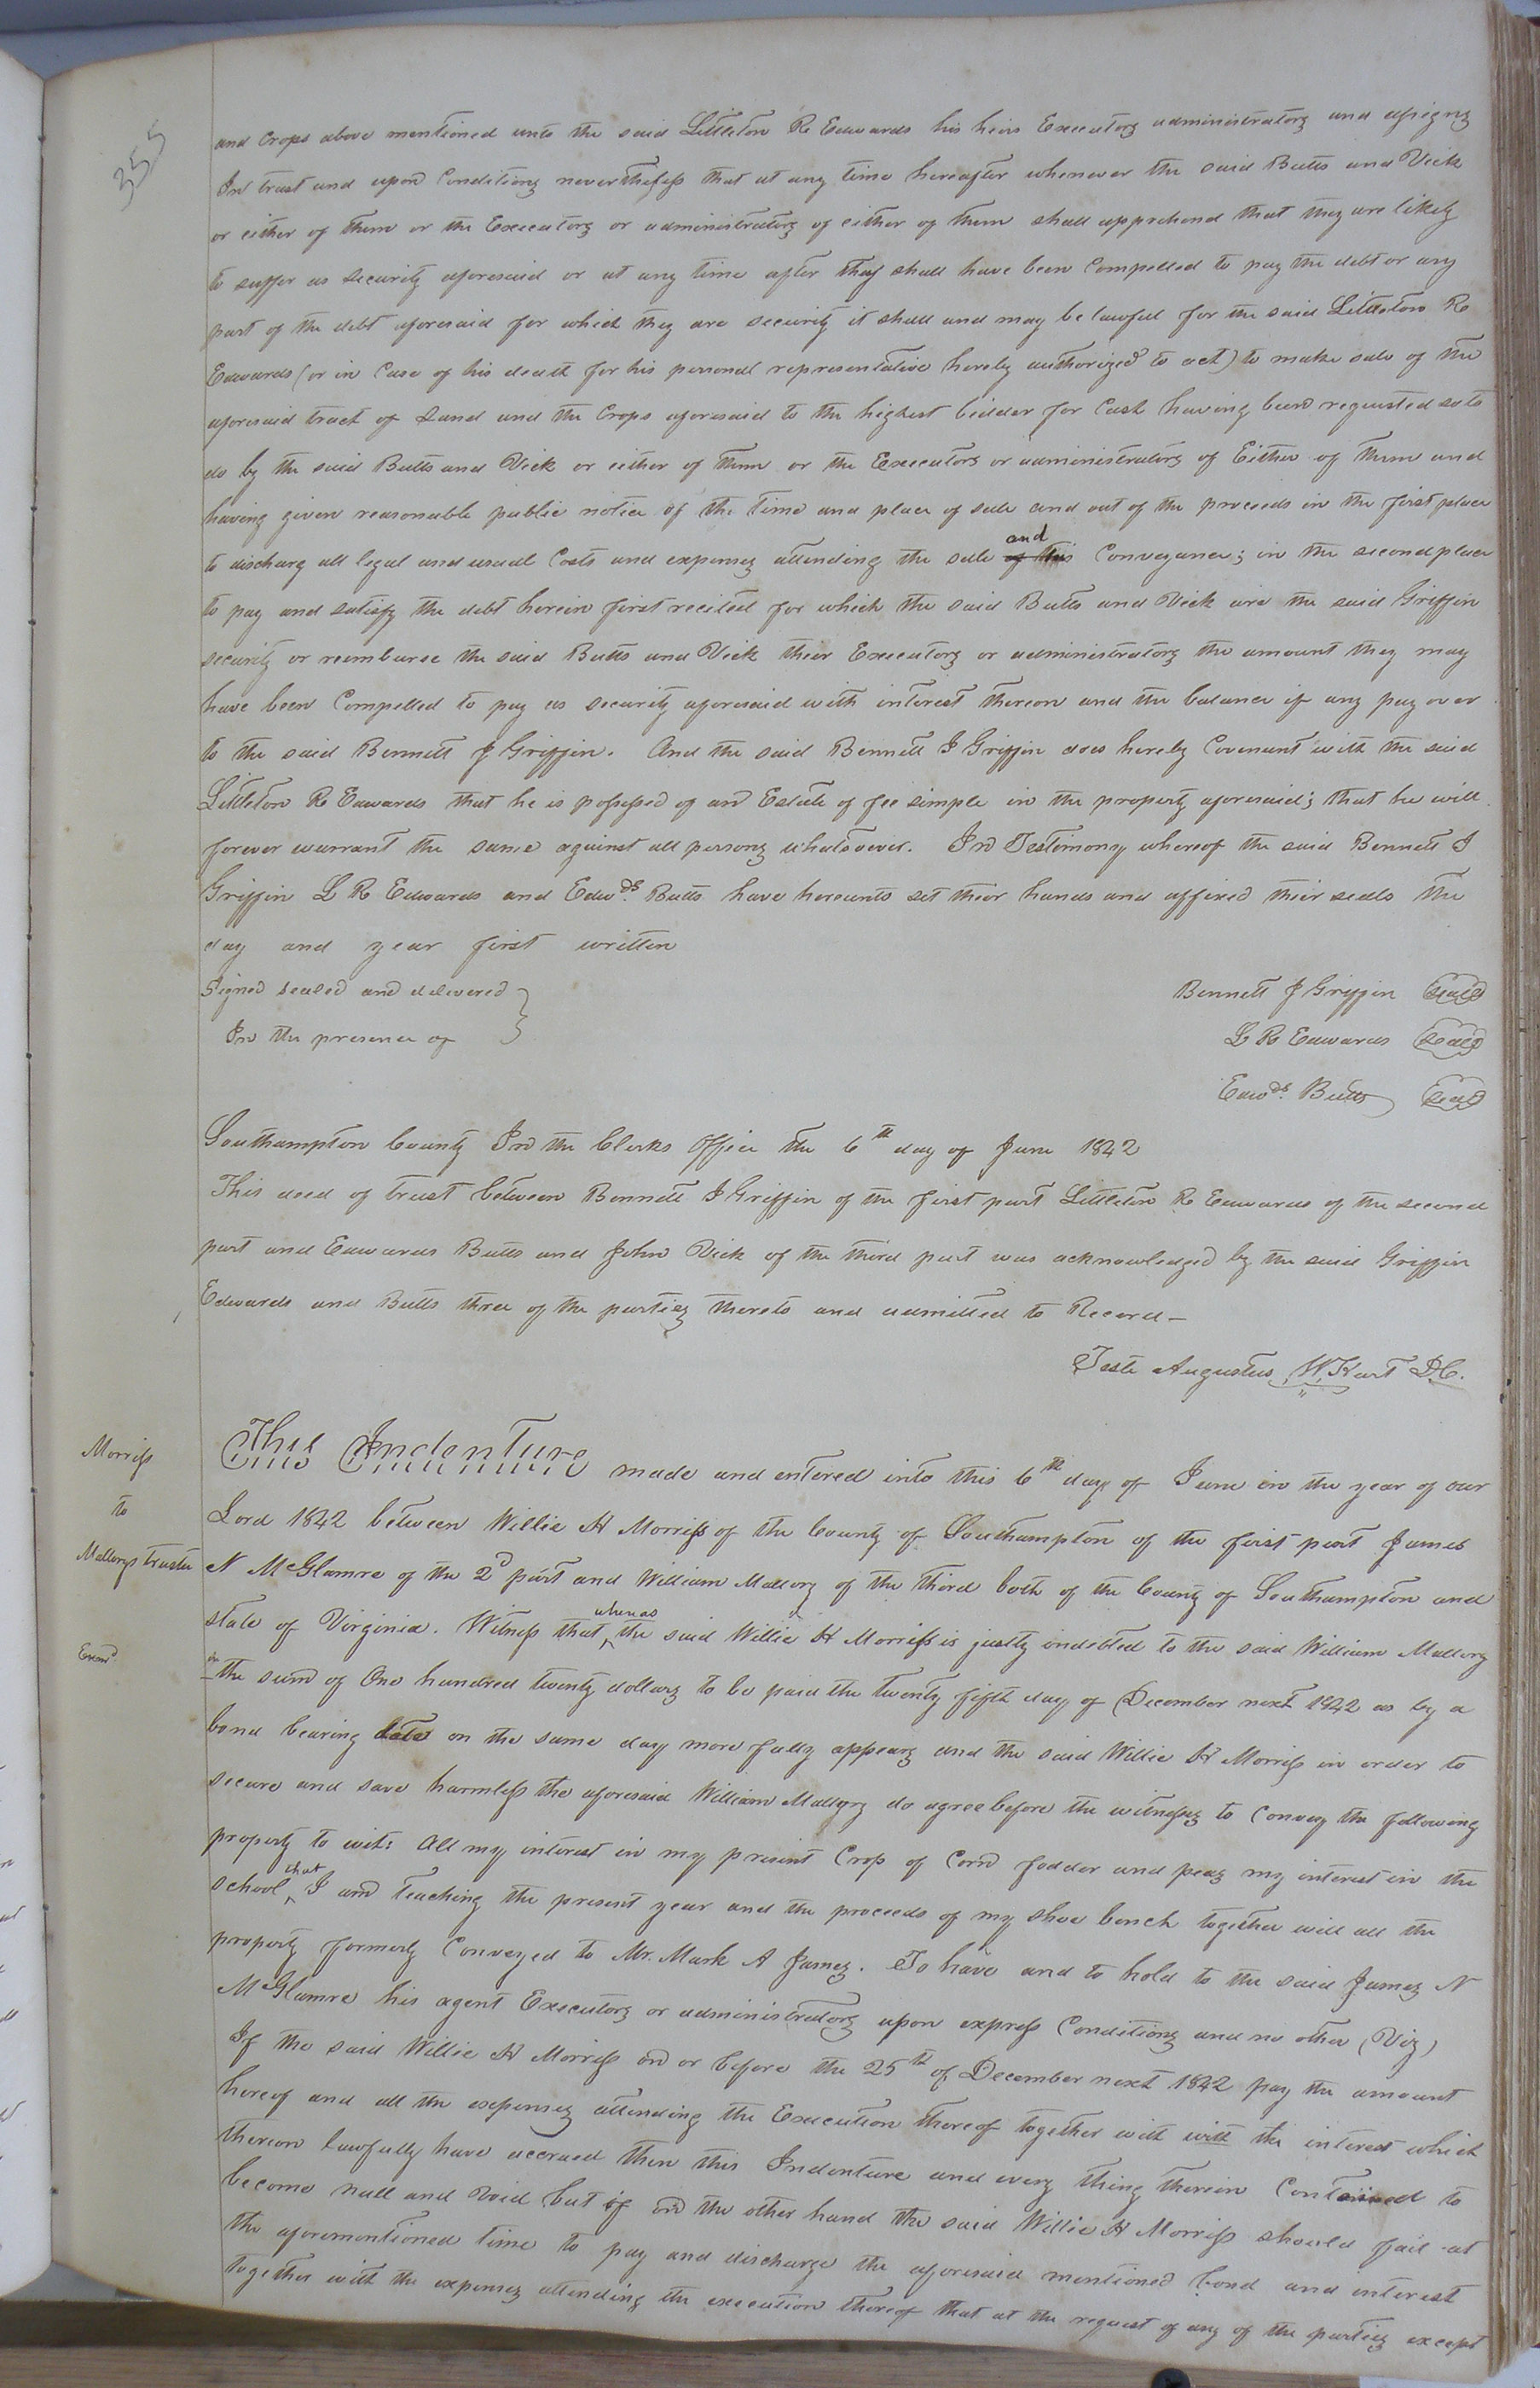 355
and Crops above mentioned unto the said Littleton R Edwards his heirs Executors administrators and assigns
In trust and upon Conditions nevertheless that at any time hereafter whenever the said Butts and Vick
or either of them or the Executors or administrators of either of them shall apprehend that they are likely
to suffer as security aforesaid or at any time after they shall have been Compelled to pay the debt or any
part of the debt aforesaid for which they are security it shall and may be lawful for the said Littleton R
Edwards (or in Case of his death for his personal representative hereby authorized to act) to make sale of the
aforesaid tract of Land and the Crops aforesaid to the highest bidder for Cash having been requested so to
do by the said Butts and Vick or either of them or the Executors or administrators of Either of them and
having given reasonable public notice of the time and place of sale and out of the proceeds in the first place
to discharg all legal and usual Costs and expenses attending the sale and this Conveyance; in the second place
to pay and satisfy the debt herein first recited for which the said Butts and Vick are the said Griffin
security or reimburse the said Butts and Vick their Executors or administrators the amount they may
have been Compelled to pay as security aforesaid with interest thereon and the balance if any pay over
to the said Bennett J Griffin. And the said Bennett J Griffin does hereby Covenant with the said
Littleton R Edwards that he is possessed of and Estate of fee simple in the property aforesaid; that he will
forever warrant the same against all persons whatsoever. In Testimony whereof the said Bennett J
Griffin L R Edwards and Edwds. Butts have hereunto set their hands and affixed their seals the
day and year first written
Signed sealed and delivered }
In the presence of
Bennett J Griffin (seal)
L R Edwards (seal)
Edwds. Butts (seal)
Southampton County In the Clerks Office the 6th day of June 1842
This deed of trust between Bennett J Griffin of the first part Littleton R Edwards of the second
part and Edwards Butts and John Vick of the third part was acknowledged by the said Griffin
Edwards and Butts three of the parties thereto and admitted to Record—
Teste Augustus W. Kart D.C.
Morriss
to
Mallorys trustee
Examd.
This Indenture made and entered into this 6th day of June in the year of our
Lord 1842 between Willie H Morriss of the County of Southampton of the first part James
N McGlamre of the 2d part and William Mallory of the third both of the County of Southampton and
state of Virginia. Witness that whereas the said Willie H Morriss is justly indebted to the said William Mallory
in the sum of One hundred twenty dollars to be paid the twenty fifth day of December next 1842 as by a
bond bearing date on the same day more fully appears and the said Willie H Morriss in order to
secure and save harmless the aforesaid William Mallory do agree before the witnesses to Convey the following
property to wit: All my interest in my present Crop of Corn fodder and peas my interest in the
school that I am teaching the present year and the proceeds of my shoe bench together will all the
property formerly Conveyed to Mr. Mark A James. To have and to hold to the said James N
McGlamre his agent Executors or administrators upon express Conditions and no other (Viz)
If the said Willie H Morriss on or before the 25th of December next 1842 pay the amount
hereof and all the expenses attending the Execution thereof together with with the interest which
thereon lawfully have accrued then this Indenture and every thing therein Contained to
become null and void but if on the other hand the said Willie H Morriss should fail at
the aforementioned time to pay and discharge the aforesaid mentioned bond and interest
together with the expenses attending the execution thereof that at the request of any of the parties except